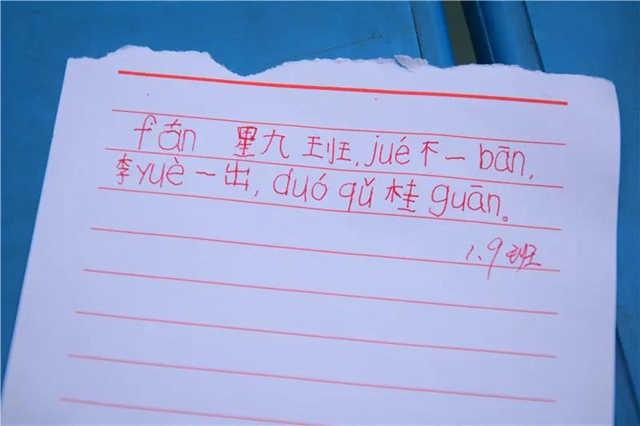 fán 星九班, jué不一bān,
李yuè一出, duó qǔ 桂guān。
1.9班